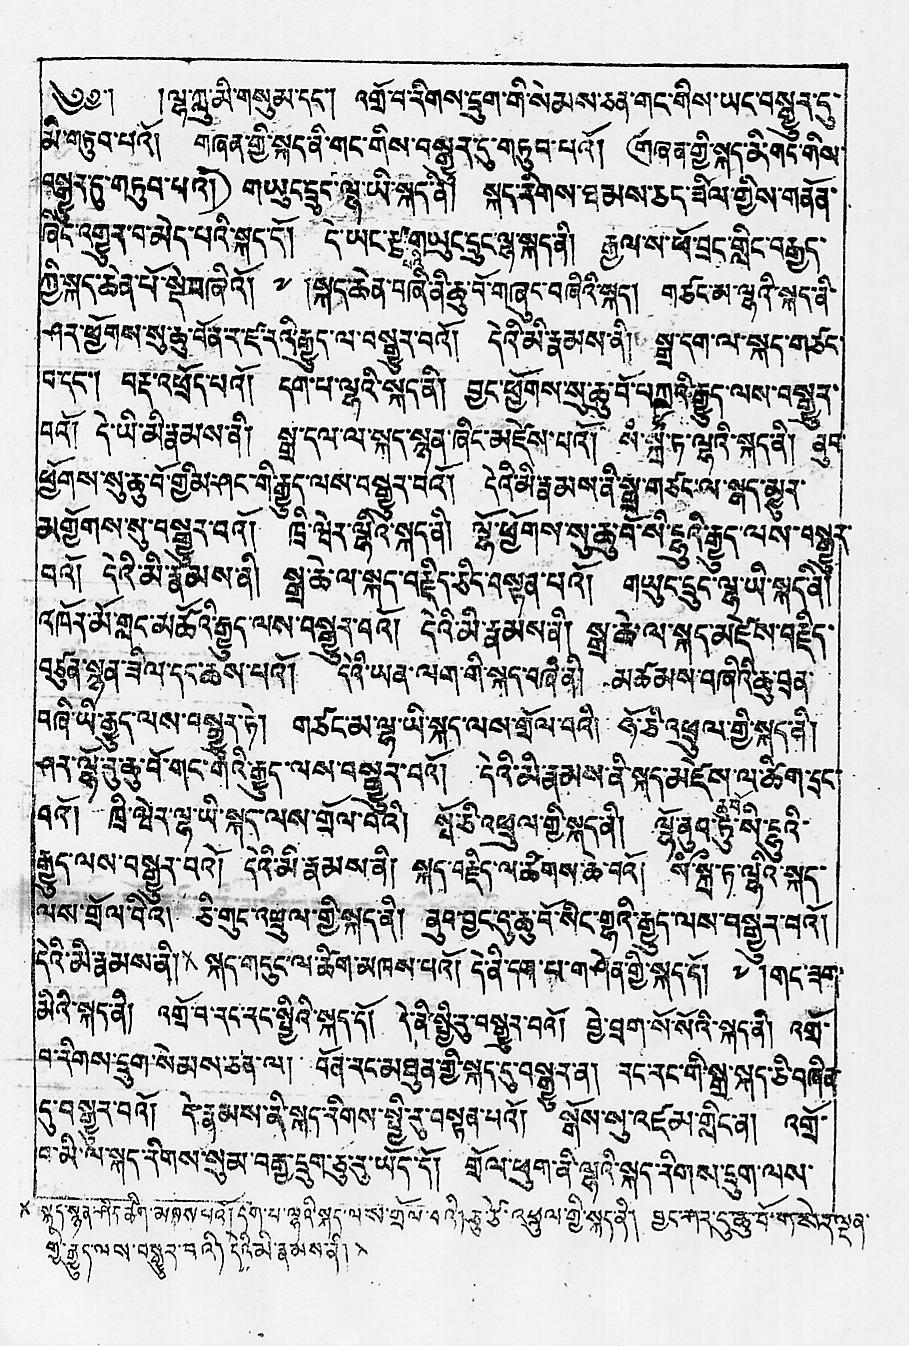 ༄༅། །ལྷ་ཀླུ་མི་གསུམ་དང་། འགྲོ་བ་རིགས་དྲུག་གི་སེམས་ཅན་གང་གིས་ཡང་བསྒྱུར་དུ་
མི་གཏུབ་པའོ། གཞན་གྱི་སྐད་ནི་གང་གིས་བསྒྱུར་དུ་གཏུབ་པའོ། (གཞན་གྱི་སྐད་ནི་གང་གིས་
བསྒྱུར་དུ་གཏུབ་པའོ།) གཡུང་དྲུང་ལྷ་ཡི་སྐད་ནི། སྐད་རིགས་ཐམས་ཅད་ཟིལ་གྱིས་གནོན་
ཞིང་འགྱུར་བ་མེད་པའི་སྐད་དོ། དེ་ཡང་རྩ་བའི་གཡུང་དྲུང་ལྷ་སྐད་ནི། རྒྱལ་ས་ཕོ་བྲང་གླིང་བརྒྱད་
ཀྱི་སྐད་ཆེན་པོ་སྡེ་བཞིའོ། ༧ །སྐད་ཆེན་བཞི་ནི་ཆུ་བོ་གཞུང་བཞིའི་སྐད། གཙང་མ་ལྷའི་སྐད་ནི་
ཤར་ཕྱོགས་སུ་ཆུ་བོ་ན་ར་ཛ་རའི་རྒྱུད་ལ་བསྒྱུར་བའོ། དེའི་མི་རྣམས་ནི། སྒྲ་དག་ལ་སྐད་གཙང་
བ་དང་། བརྡ་འཕྲོད་པའོ། དག་པ་ལྷའི་སྐད་ནི། བྱང་ཕྱོགས་སུ་ཆུ་བོ་པཀྵུའི་རྒྱུད་ལས་བསྒྱུར་
བའོ། དེ་ཡི་མི་རྣམས་ནི། སྒྲ་དལ་ལ་སྐད་སྙན་ཞིང་མཛེས་པའོ། སཾ་སྐྲི་ཏ་ལྷའི་སྐད་ནི། ནུབ་
ཕྱོགས་སུ་ཆུ་བོ་གྱིམ་ཤང་གི་རྒྱུད་ལས་བསྒྱུར་བའོ། དེའི་མི་རྣམས་ནི་སྒྲ་གཙང་ལ་སྐད་མྱུར་
མགྱོགས་སུ་བསྒྱུར་བའོ། ཁྲི་ལྕེར་ལྷའི་སྐད་ནི། ལྷོ་ཕྱོགས་སུ་ཆུ་བོ་སི་ནྡྷུའི་རྒྱུད་ལས་བསྒྱུར་
བའོ། དེའི་མི་རྣམས་ནི། སྒྲ་ཆེ་ལ་སྐད་བརྗིད་ཅིང་བསྟན་པའོ། གཡུང་དྲུང་ལྷ་ཡི་སྐད་ནི།
འཁོར་མོ་གླང་མཚོའི་རྒྱུད་ལས་བསྒྱུར་བའོ། དེའི་མི་རྣམས་ནི། སྒྲ་ཆེ་ལ་སྐད་མཛེས་བརྗིད་
བཙུན་སྙན་ཟིལ་དང་ཆས་པའོ། དེའི་ཡན་ལག་གི་སྐད་བཞི་ནི། མཚམས་བཞིའི་ཆུ་བྲན་
བཞི་ཡི་རྒྱུད་ལས་བསྒྱུར་ཏེ། གཙང་མ་ལྷ་ཡི་སྐད་ལས་གྲོལ་བའི། ཧོ་ཅི་འཕྲུལ་གྱི་སྐད་ནི།
ཤར་ལྷོ་རུ་ཆུ་བོ་གང་གཱའི་རྒྱུད་ལས་བསྒྱུར་བའོ། དེའི་མི་རྣམས་ནི་སྐད་མཛེས་ལ་ཚིག་དྲང་
བའོ། ཁྲི་ལྕེར་ལྷ་ཡི་སྐད་ལས་གྲོལ་བའི། སྤོ་ཅི་འཕྲུལ་གྱི་སྐད་ནི། ལྷོ་ནུབ་ཏུ་ཆུ་བོ་སི་ནྡྷུའི་
རྒྱུད་ལས་བསྒྱུར་བའོ། དེའི་མི་རྣམས་ནི། སྐད་བརྗིད་ལ་ཚིགས་ཆེ་བའོ། སཾ་སྐྲི་ཏ་ལྷའི་སྐད་
ལས་གྲོལ་བའི། ཅི་གུང་འཕྲུལ་གྱི་སྐད་ནི། ནུབ་བྱང་དུ་ཆུ་བོ་སིང་གྷའི་རྒྱུད་ལས་བསྒྱུར་བའོ།
དེའི་མི་རྣམས་ནི།× སྐད་གདུང་ལ་ཚིག་མཁས་པའོ། དེ་ནི་དག་པ་གཤེན་གྱི་སྐད་དོ། ༧ །གང་ཟག་
མིའི་སྐད་ནི། འགྲོ་བ་རང་རང་སྤྱིའི་སྐད་དོ། དེ་ནི་སྤྱི་རུ་བསྒྱུར་བའོ། བྱེ་བྲག་སོ་སོའི་སྐད་ནི། འགྲོ་
བ་རིགས་དྲུག་སེམས་ཅན་ལ། བོན་རང་མཐུན་གྱི་སྐད་དུ་བསྒྱུར་ན། རང་རང་གི་སྒྲ་སྐད་ཅི་བཞིན་
དུ་བསྒྱུར་བའོ། དེ་རྣམས་ནི་སྐད་རིགས་སྤྱི་རུ་བསྟན་པའོ། སྒོས་སུ་འཛམ་གླིང་ན། འགྲོ་
བ་མི་ལ་སྐད་རིགས་སུམ་བརྒྱ་དྲུག་ཅུ་རུ་ཡོད་དོ། གྲོལ་ཕྲུག་ནི་ལྷའི་སྐད་རིགས་དྲུག་ལས་
× སྐད་སྙན་ཤིང་ཚིག་མཁས་པའོ། དག་པ་ལྷའི་སྐད་ལས་གྲོལ་བའི། ཆུ་ཅི་འཕྲུལ་གྱི་སྐད་ནི། བྱང་ཤར་དུ་ཆུ་བོ་གསེར་ལྡན་
གྱི་རྒྱུད་ལས་བསྒྱུར་བའི། དེའི་མི་རྣམས་ནི། ×